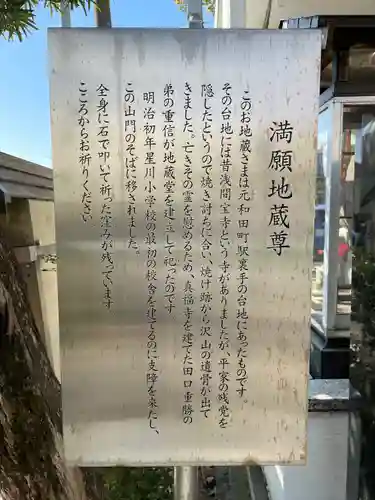 満願地蔵尊
このお地蔵さまは元和田町駅裏手の台地にあったものです。
その台地には昔浅間宝寺という寺がありましたが、平家の残党を
隠したというので焼き討ちに合い、焼け跡から沢山の遺骨が出て
きました。亡きその霊を慰めるため、真福寺を建てた田口重勝の
弟の重信が地蔵堂を建立して祀ったのです
明治初年星川小学校の最初の校舎を建てるのに支障を来たし、
この山門のそばに移されました。
全身に石で叩いて祈った窪みが残っています
こころからお祈りください